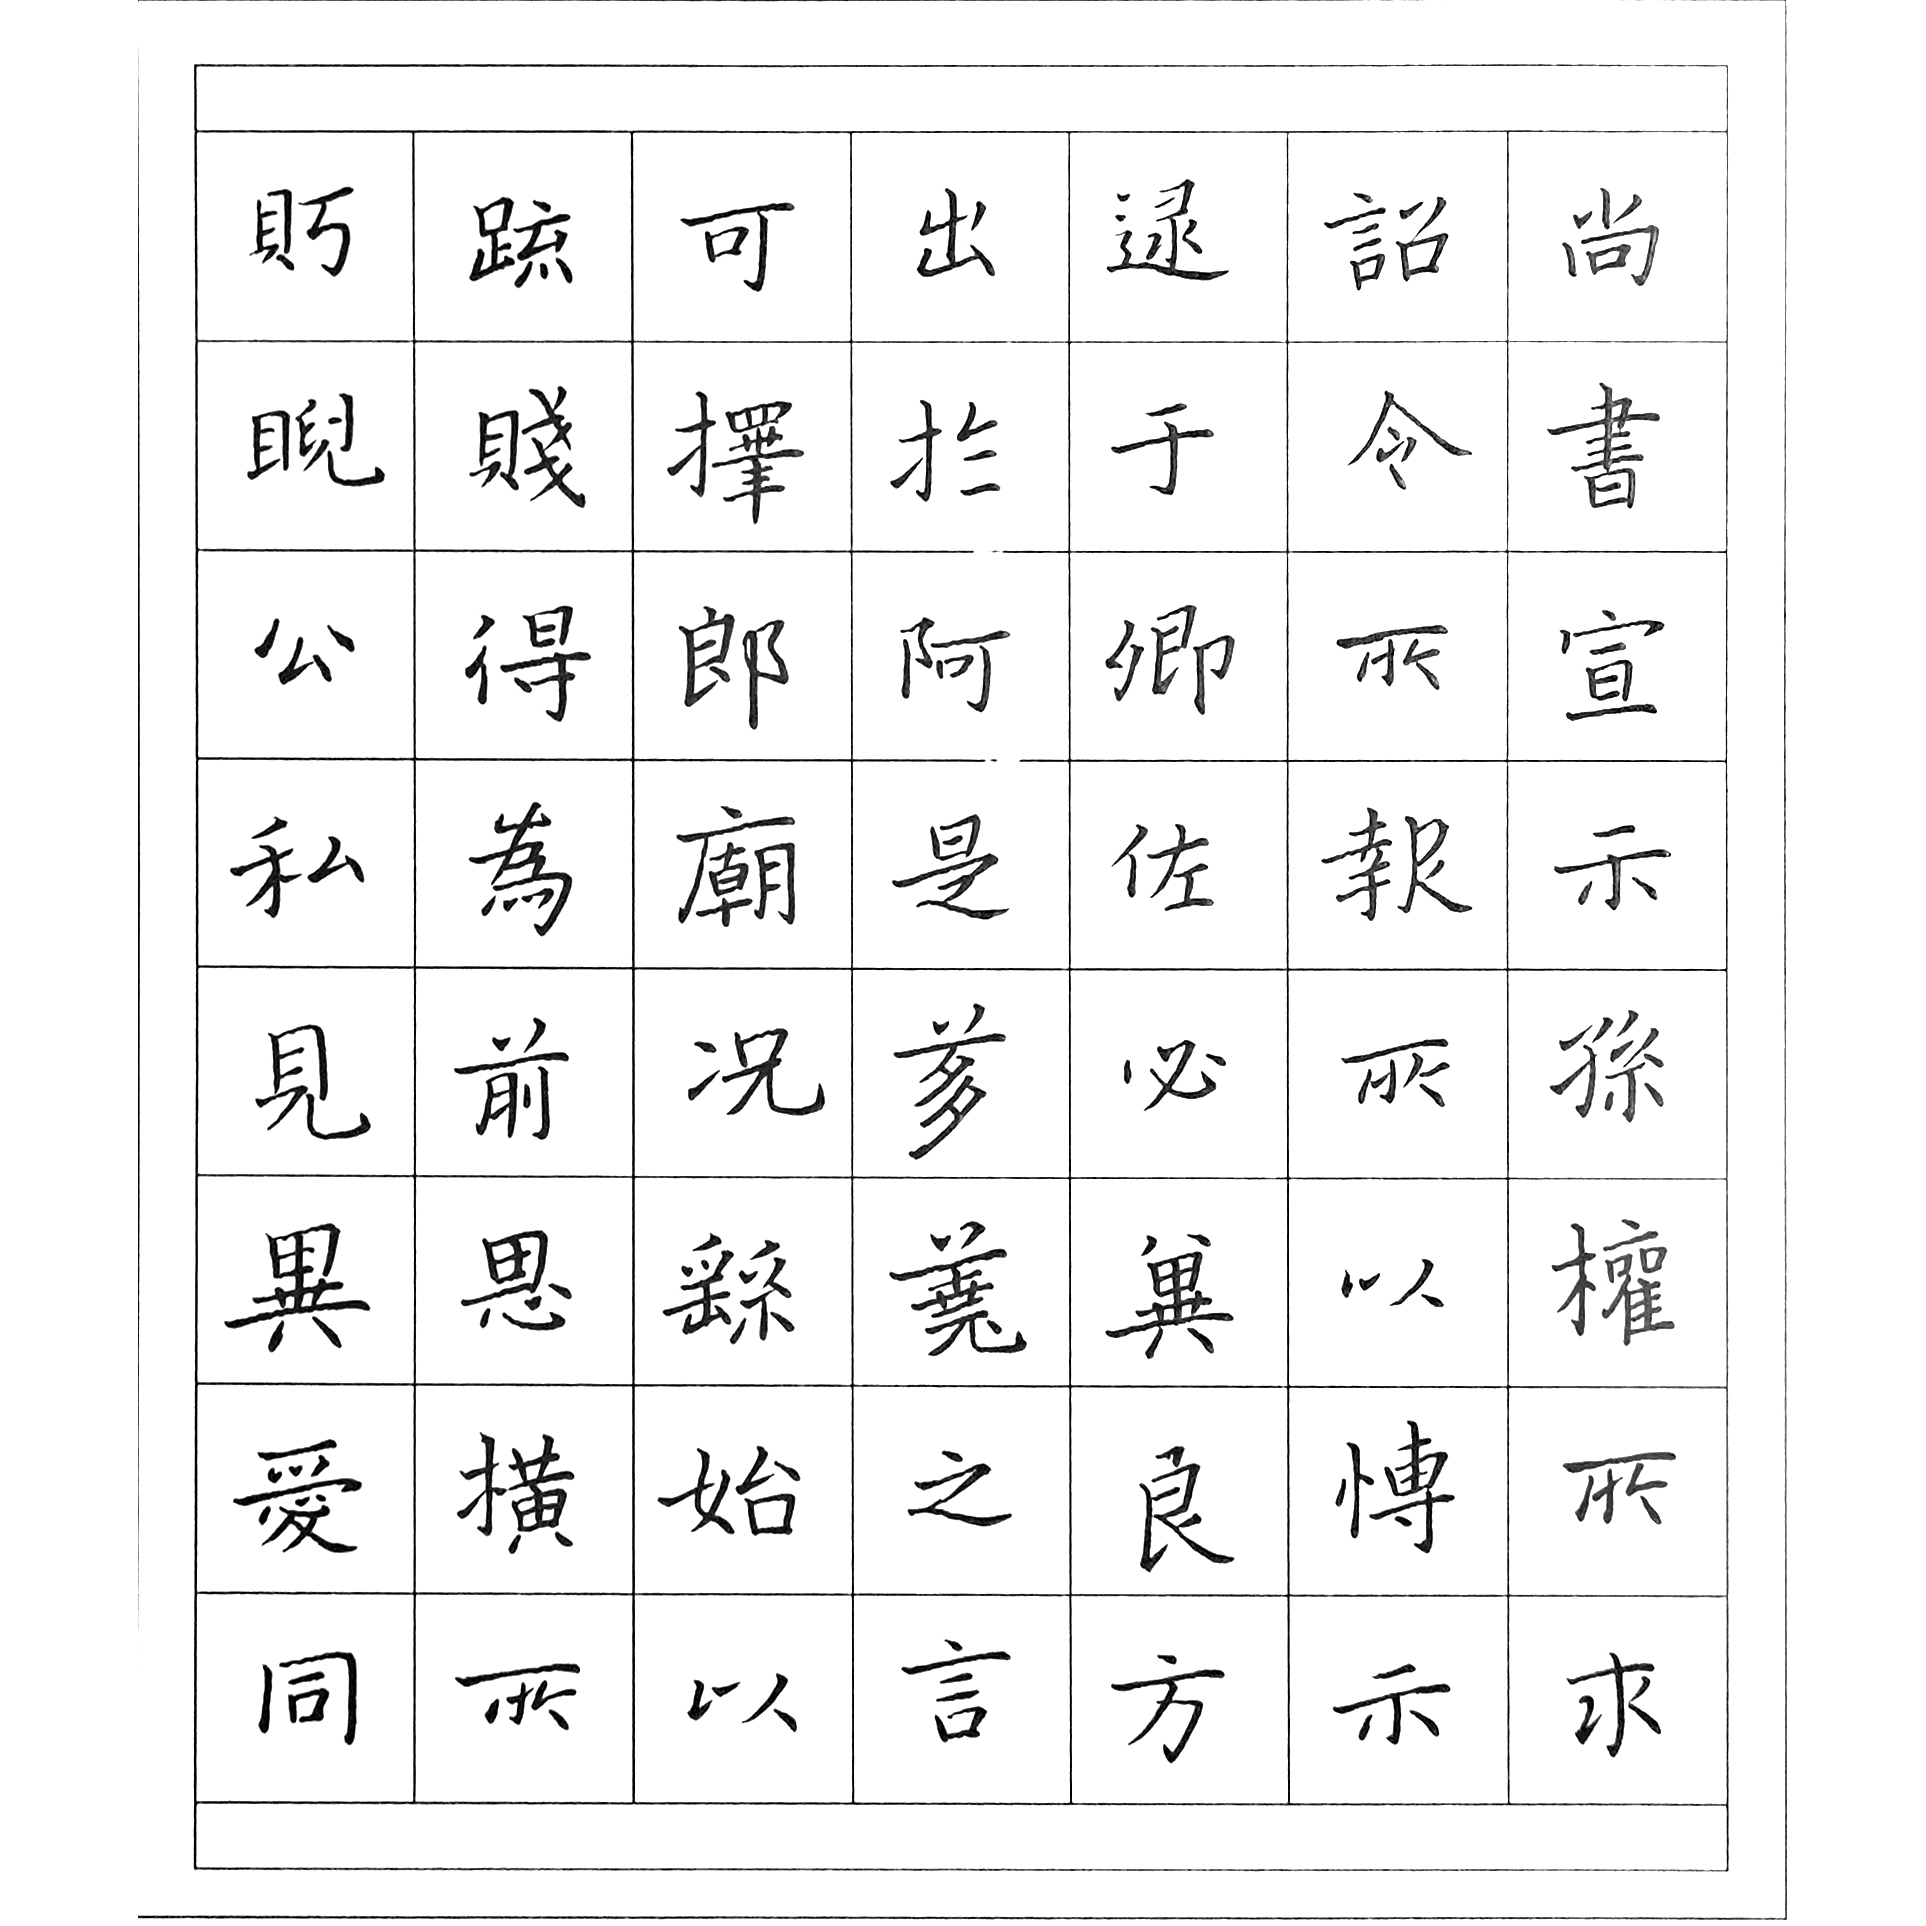 尚書宣示孫權所求
詔令所報所以愽示
逮于卿佐必冀良方
出扵阿是芻蕘之言
可擇郎廟况繇始以
疏賤得為前恩橫所
眄睨公私見異愛同